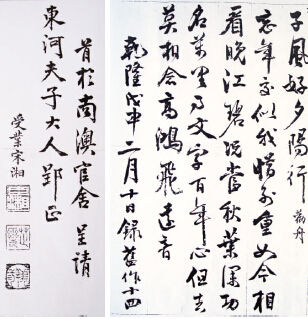 子風好夕陽行
忘年交似我惜別重如今相
看晚江碧況當秋葉深功
名萬里事文字百年心但去
莫相念高鴻飛遠音
乾隆戊申二月十日錄舊作十四
首於南澳官舍 呈請
東河夫子大人 郢正
受業宋湘